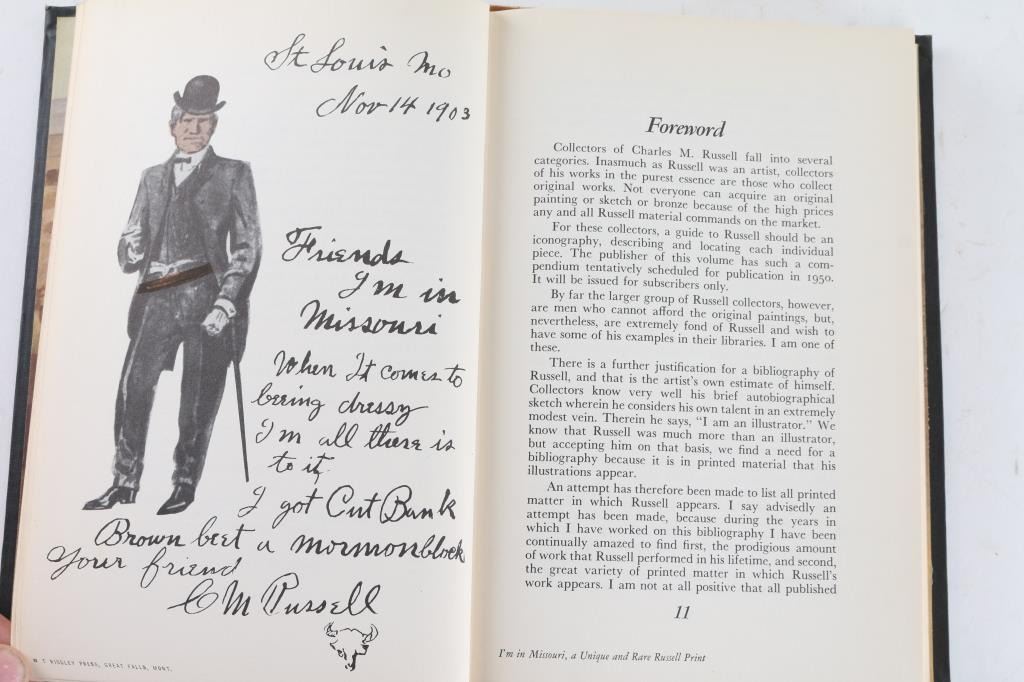 St Louis Mo
Nov 14 1903
Friends
I'm in
Missouri
When It comes to
beeing dressy
I'm all there is
to it.
I got Cut Bank
Brown beet a mormonblock
Your friend
C M Russell
T RIDGLEY PRESS, GREAT FALLS, MONT.
Foreword
Collectors of Charles M. Russell fall into several
categories. Inasmuch as Russell was an artist, collectors
of his works in the purest essence are those who collect
original works. Not everyone can acquire an original
painting or sketch or bronze because of the high prices
any and all Russell material commands on the market.
For these collectors, a guide to Russell should be an
iconography, describing and locating each individual
piece. The publisher of this volume has such a com-
pendium tentatively scheduled for publication in 1950.
It will be issued for subscribers only.
By far the larger group of Russell collectors, however,
are men who cannot afford the original paintings, but,
nevertheless, are extremely fond of Russell and wish to
have some of his examples in their libraries. I am one of
these.
There is a further justification for a bibliography of
Russell, and that is the artist's own estimate of himself.
Collectors know very well his brief autobiographical
sketch wherein he considers his own talent in an extremely
modest vein. Therein he says, "I am an illustrator." We
know that Russell was much more than an illustrator,
but accepting him on that basis, we find a need for a
bibliography because it is in printed material that his
illustrations appear.
An attempt has therefore been made to list all printed
matter in which Russell appears. I say advisedly an
attempt has been made, because during the years in
which I have worked on this bibliography I have been
continually amazed to find first, the prodigious amount
of work that Russell performed in his lifetime, and second,
the great variety of printed matter in which Russell's
work appears. I am not at all positive that all published
11
I'm in Missouri, a Unique and Rare Russell Print